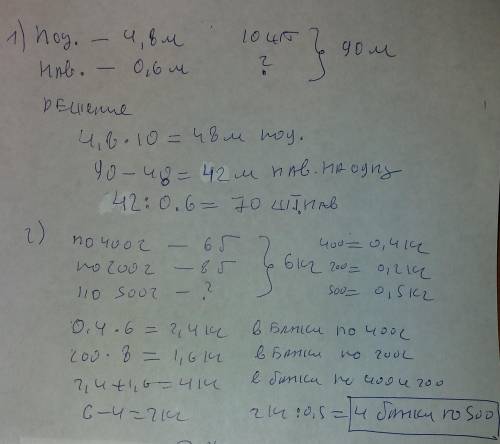 1) Под. — 4,8 м 10 шт } 90 м
Нав. — 0,6 м ?
Решение
4,8 · 10 = 48 м под.
90 – 48 = 42 м нав.
42 : 0.6 = 70 шт. нав
2) по 400г — 6 б } 6 кг 400 = 0,4 кг
по 200г — 8 б 200 = 0,2 кг
по 500г — ? 500 = 0,5 кг
0.4 · 6 = 2,4 кг в банки по 400г
200 · 8 = 1,6 кг в банки по 200г
2,4 + 1,6 = 4 кг в банки по 400 и 200
6 – 4 = 2 кг 2 кг : 0,5 = 4 банки по 500